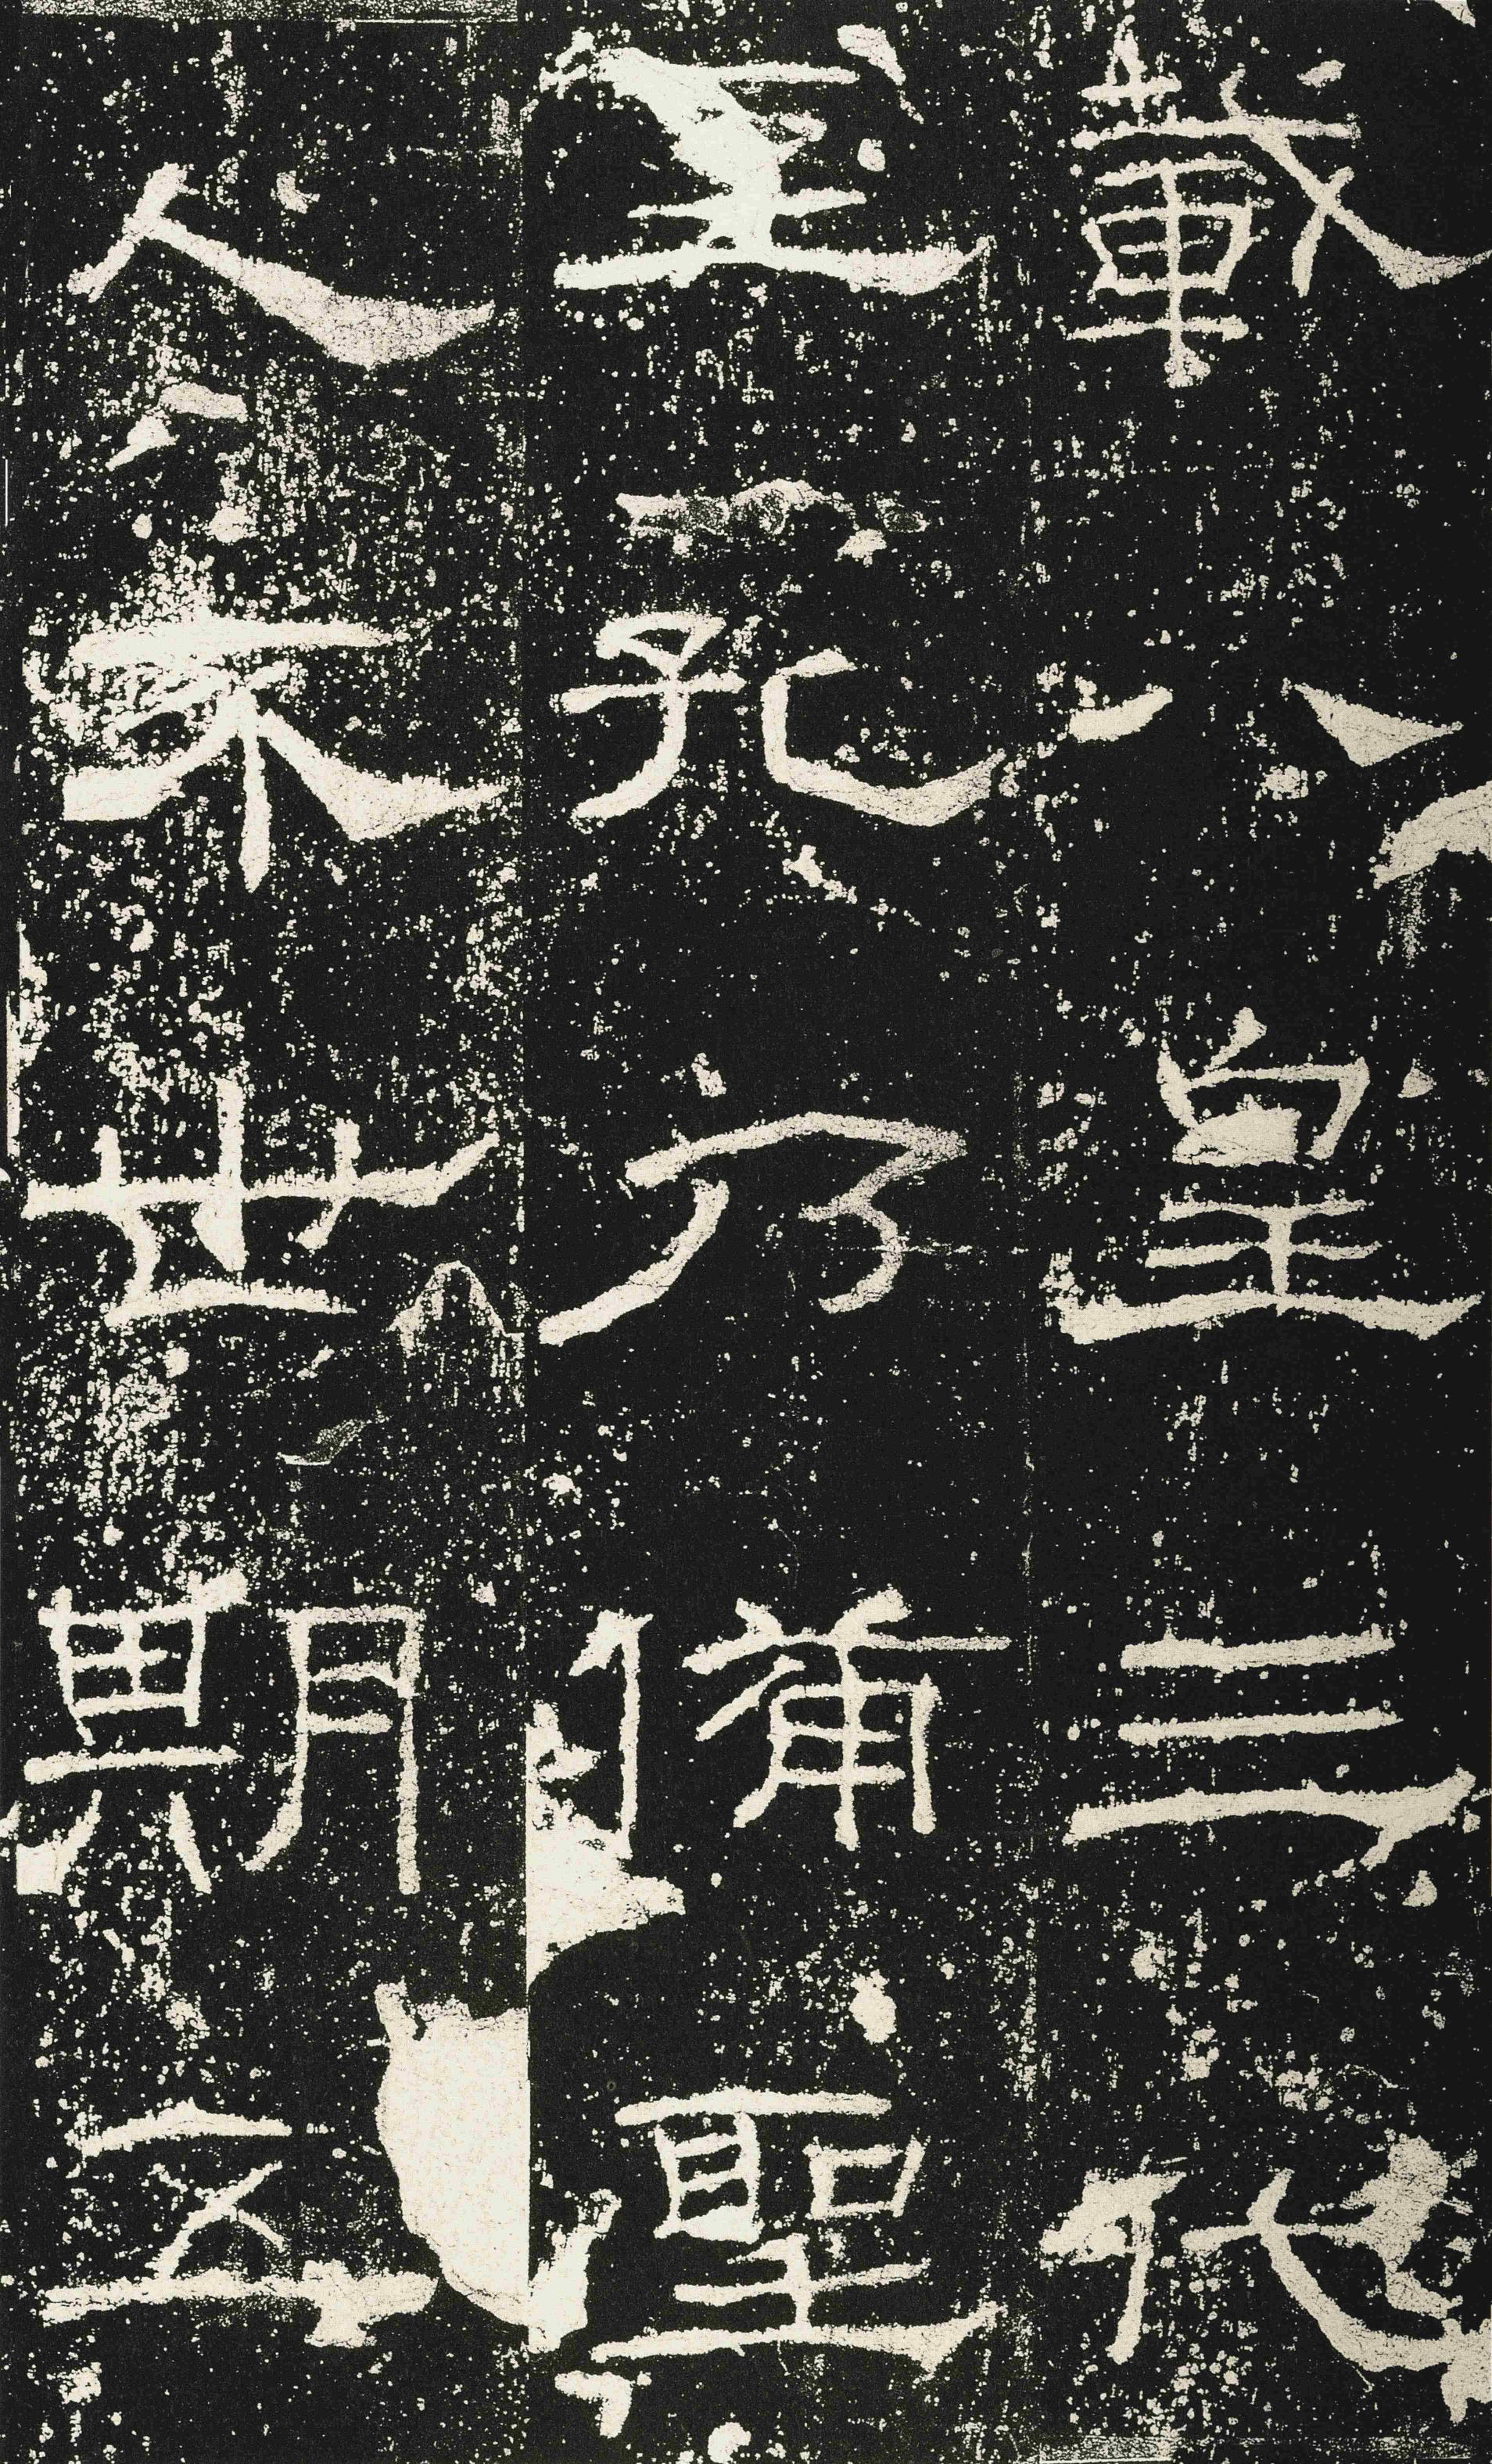 載八皇三代
至孔乃備聖
人不世期五